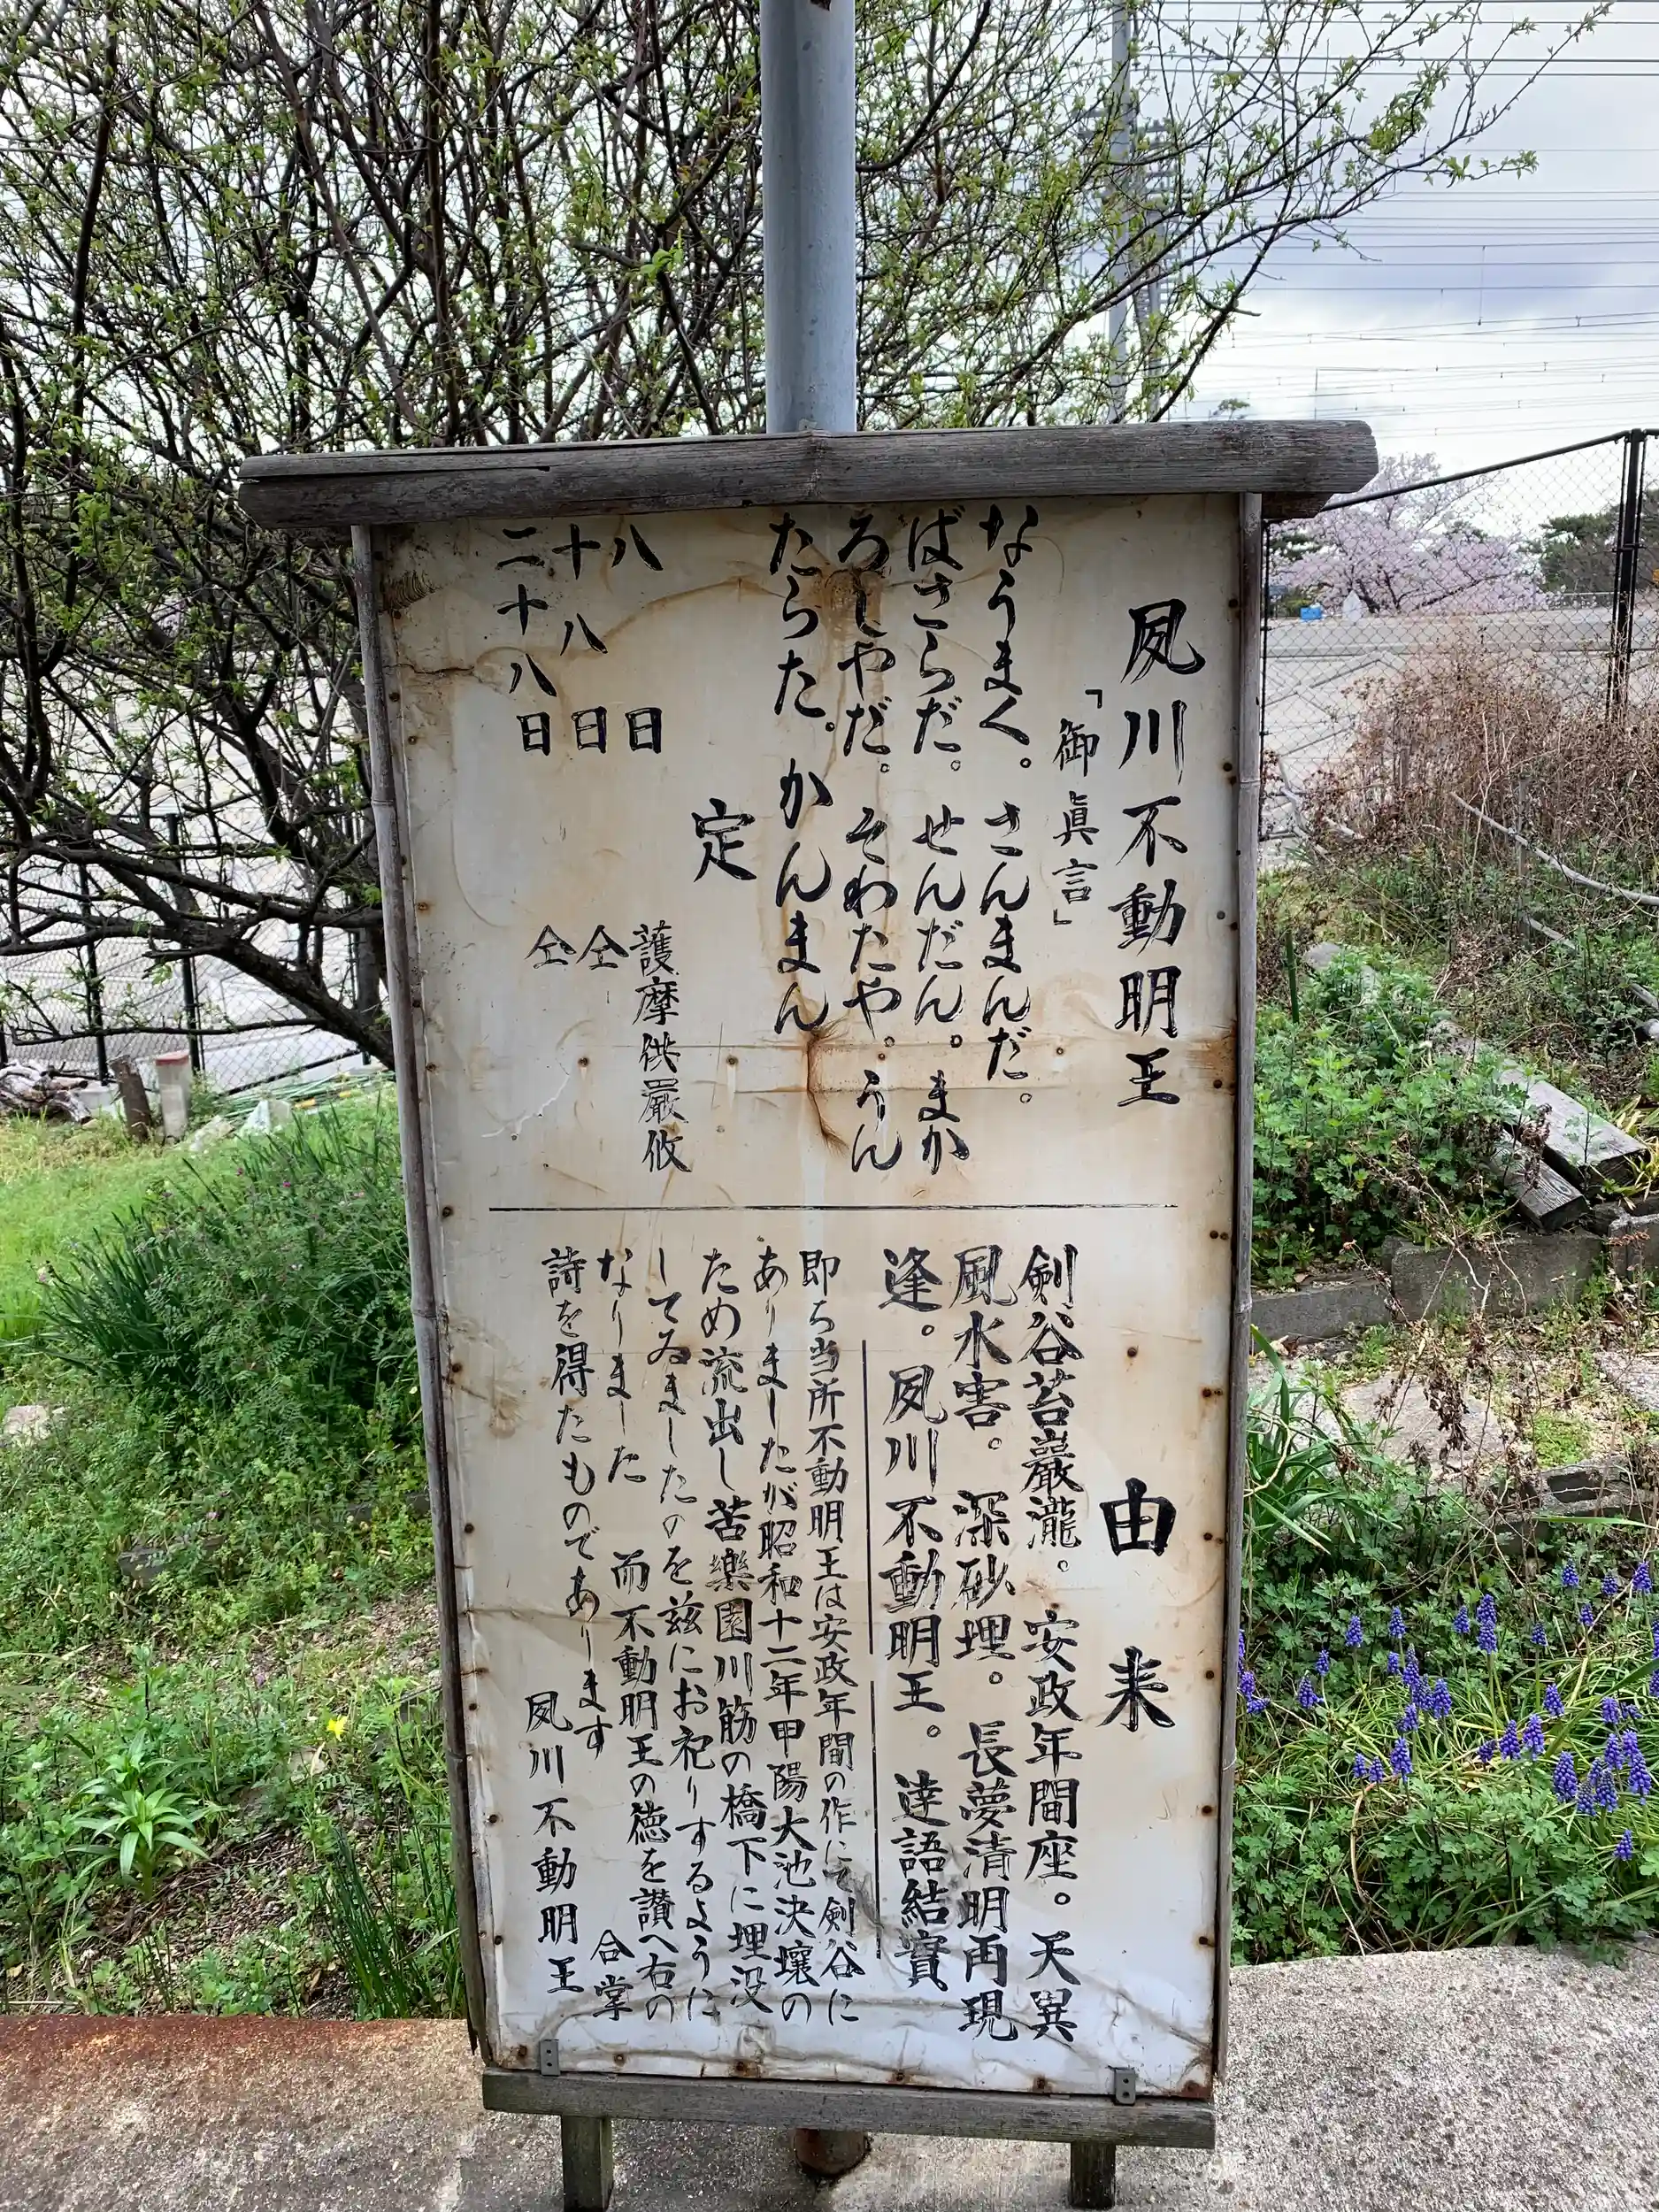 夙川不動明王
「御眞言」
なうまく。さんまんだ。
ばさらだ。せんだん。まか
ろしやだ。そわたや。うん
たらた。かんまん
定
八日 護摩供厳修
十八日 仝
二十八日 仝
由来
剣谷苔巖瀧。安政年間座。天異
風水害。深砂埋。長夢清明再現
逢。夙川不動明王。達語結實
即ち当所不動明王は安政年間の作にて剣谷に
ありましたが昭和十二年甲陽大池決壊の
ため流出し苦樂園川筋の橋下に埋没
してゐましたのを茲にお祀りするように
なりました 而不動明王の徳を讃へ右の
詩を得たものであります 合掌
夙川不動明王